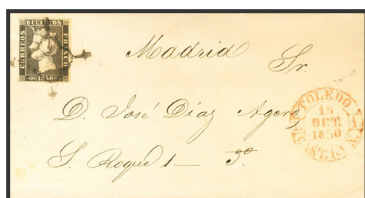 6 CUATROS
CORREOS
FRANCO
1850
Madrid
Sr.
D. José Díaz Agero
S. Roque 1 — 3º
TOLEDO
16
OCT.
1850